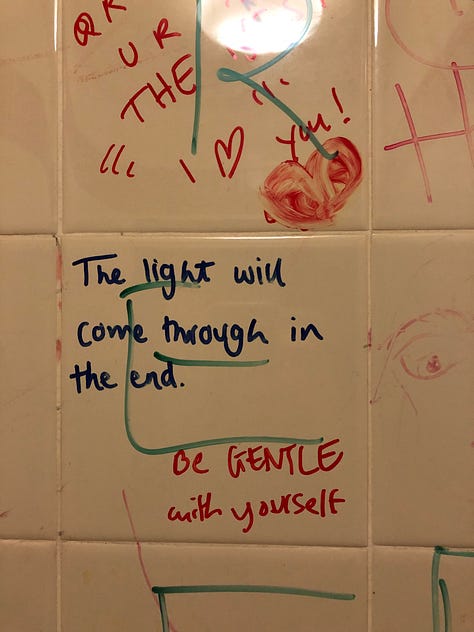 UR
THE
I ♡ you!
The light will
come through in
the end.
Be GENTLE
with yourself